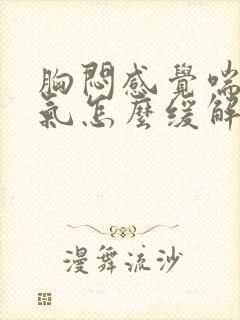 胸悶感覺喘
氣怎麼缓解
漫舞流沙